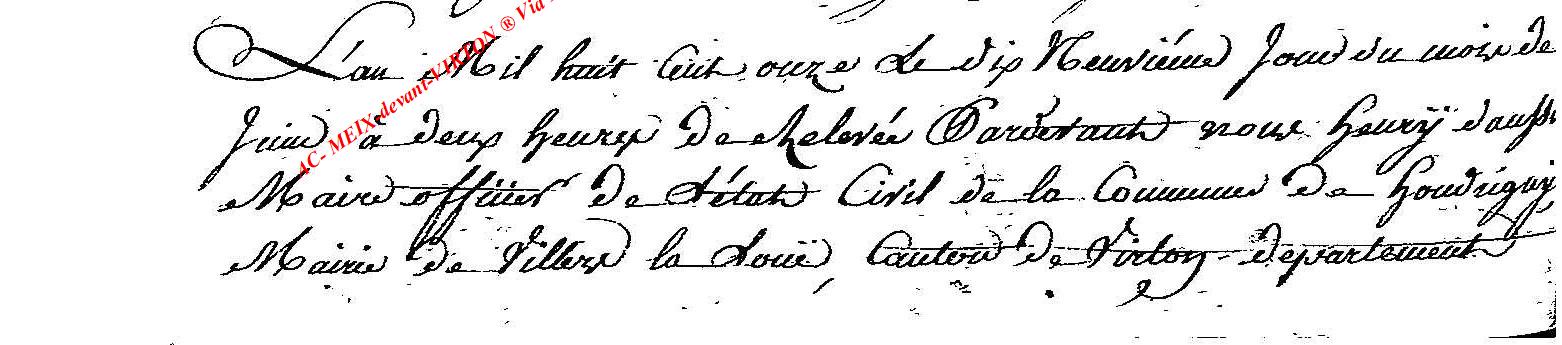 L'an Mil huit Cent onze Le dix Neuvième Jour du mois de
Juin à deux heures de Relevée Pardevant nous henrÿ
Maire officier de L'état Civil de la Commune de houdrignÿ
Mairie de Villers la Loüe, Canton de Virton departement
4C- MEIX-devant-VIRTON ® Via